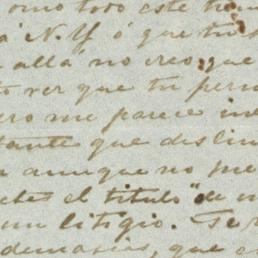 como todo este
á N. Y. ó que tu
allá no creo que
ver que tu
ero me parece
tante que
aunque no me
el titulo "de
un litigio.
demasias, que